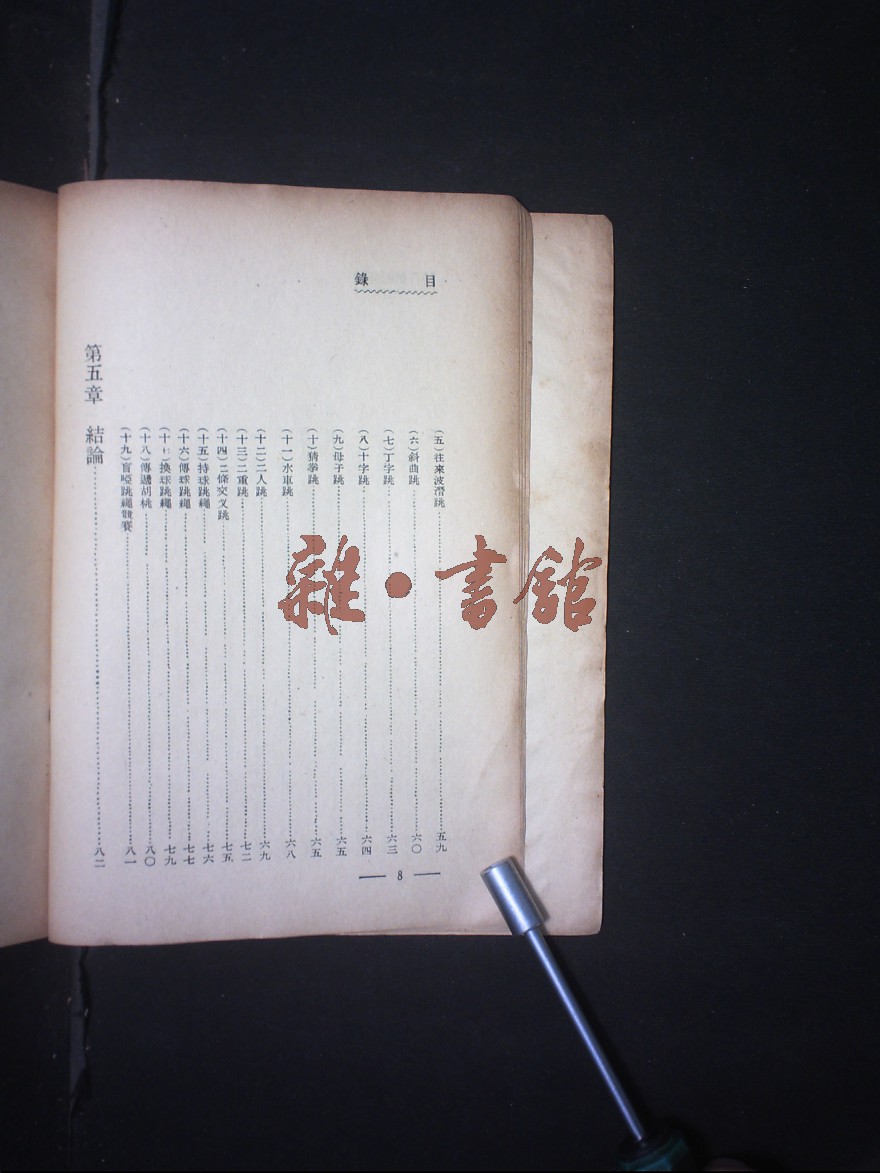 目錄
(五)往來波濳跳 五九
(六)斜曲跳 六〇
(七)丁字跳 六三
(八)十字跳 六四
(九)母子跳 六五
(十)猜拳跳 六五
(十一)水車跳 六八
(十二)二人跳 六九
(十三)二重跳 七二
(十四)二條交叉跳 七五
(十五)持球跳繩 七六
(十六)傳球跳繩 七七
(十七)換球跳繩 七九
(十八)傳遞胡桃 八〇
(十九)盲啞跳繩競賽 八一
第五章 結論 八二
8
雜·書館